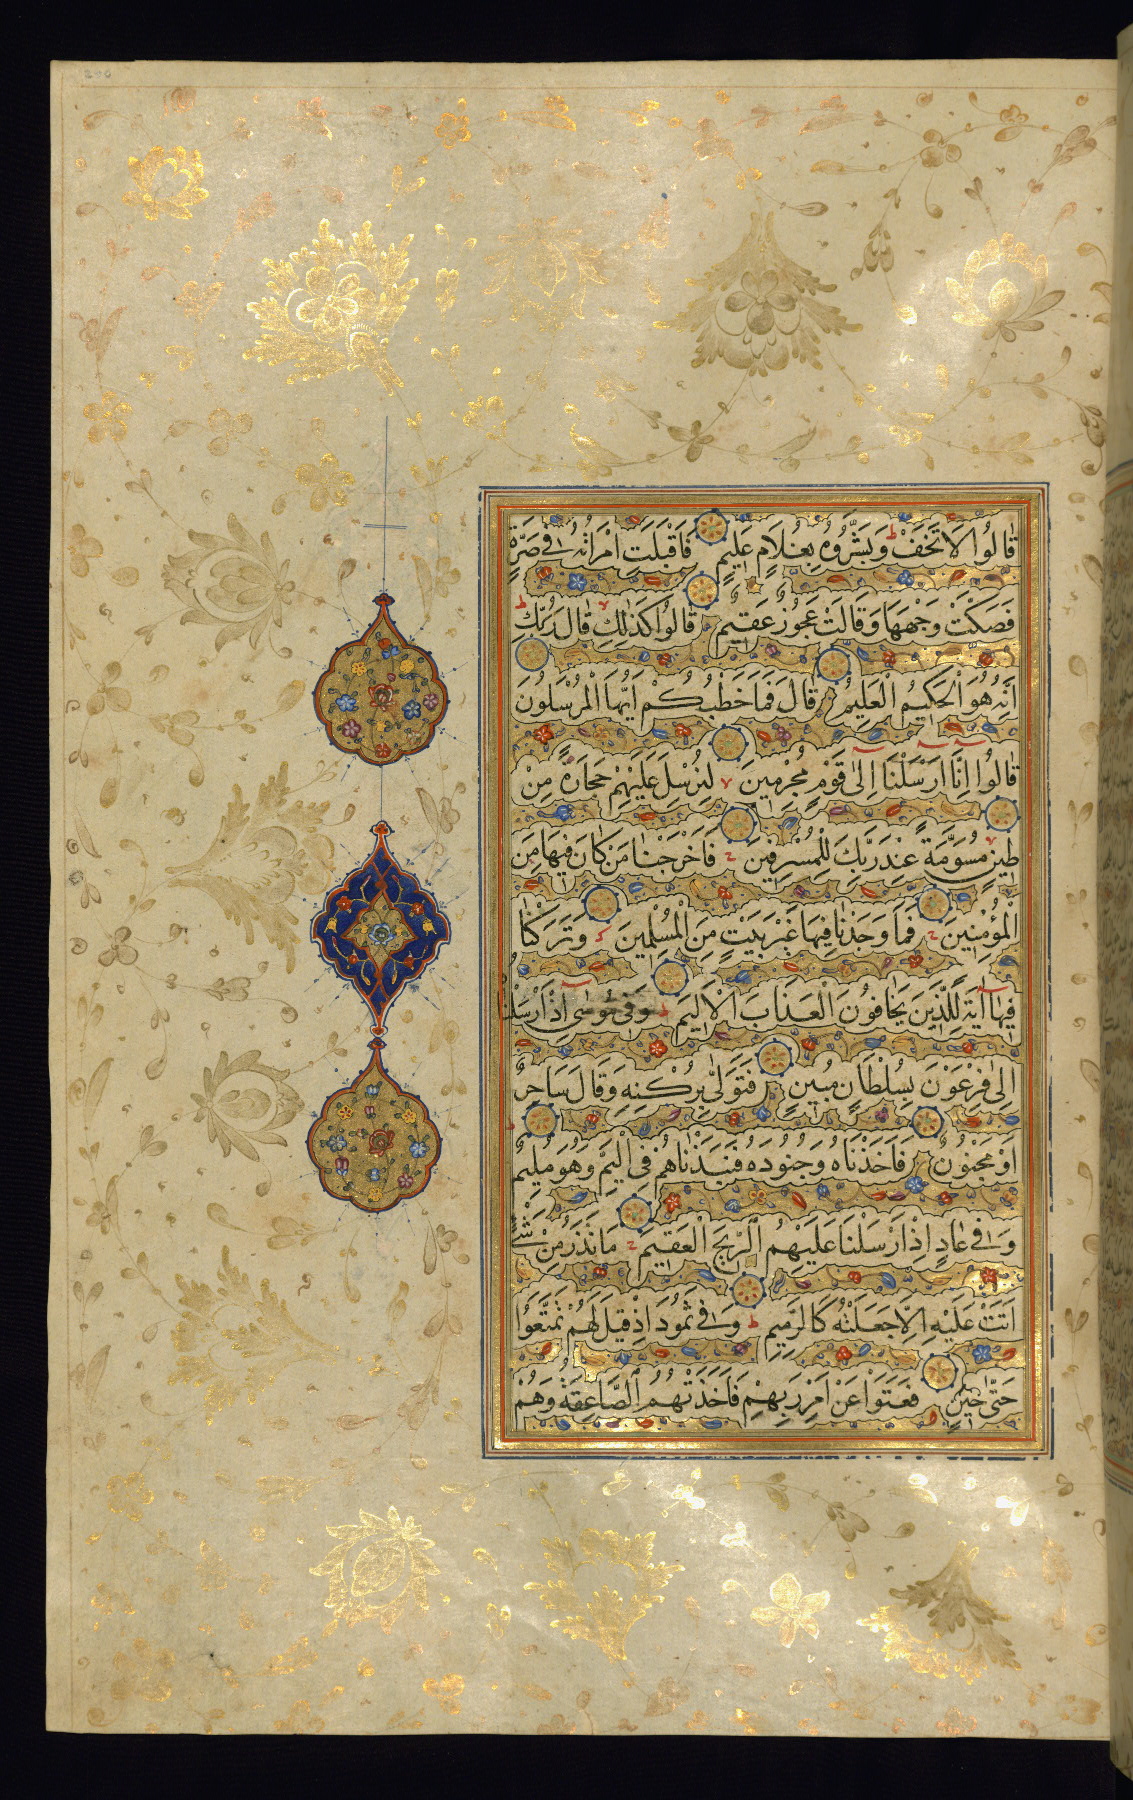 قَالُوا لَا تَخَفْ وَبَشَّرُوهُ بِغُلَامٍ عَلِيمٍ فَاَقْبَلَتِ امْرَاَتُهُ فِي صَرَّةٍ
فَصَكَّتْ وَجْهَهَا وَقَالَتْ عَجُوزٌ عَقِيمٌ قَالُوا كَذٰلِكِ قَالَ رَبُّكِ
اِنَّهُ هُوَ الْحَكِيمُ الْعَلِيمُ قَالَ فَمَا خَطْبُكُمْ اَيُّهَا الْمُرْسَلُونَ
قَالُوا اِنَّا اَرْسَلْنَا اِلٰى قَوْمٍ مُجْرِمِينَ لِنُرْسِلَ عَلَيْهِمْ حِجَارَةً مِنْ
طِينٍ مُسَوَّمَةً عِنْدَ رَبِّكَ لِلْمُسْرِفِينَ فَاَخْرَجْنَا مَنْ كَانَ فِيهَا مِنَ
الْمُؤْمِنِينَ فَمَا وَجَدْنَا فِيهَا غَيْرَ بَيْتٍ مِنَ الْمُسْلِمِينَ وَتَرَكْنَا
فِيهَا اٰيَةً لِلَّذِينَ يَخَافُونَ الْعَذَابَ الْاَلِيمَ وَفِي مُوسٰى اِذْ اَرْسَلْنَا
اِلٰى فِرْعَوْنَ بِسُلْطَانٍ مُبِينٍ فَتَوَلّٰى بِرُكْنِهِ وَقَالَ سَاحِرٌ
اَوْ مَجْنُونٌ فَاَخَذْنَاهُ وَجُنُودَهُ فَنَبَذْنَاهُمْ فِي الْيَمِّ وَهُوَ مُلِيمٌ
وَفِي عَادٍ اِذْ اَرْسَلْنَا عَلَيْهِمُ الرِّيحَ الْعَقِيمَ مَا تَذَرُ مِنْ شَيْءٍ
اَتَتْ عَلَيْهِ اِلَّا جَعَلَتْهُ كَالرَّمِيمِ وَفِي ثَمُودَ اِذْ قِيلَ لَهُمْ تَمَتَّعُوا
حَتّٰى حِينٍ فَعَتَوْا عَنْ اَمْرِ رَبِّهِمْ فَاَخَذَتْهُمُ الصَّاعِقَةُ وَهُمْ